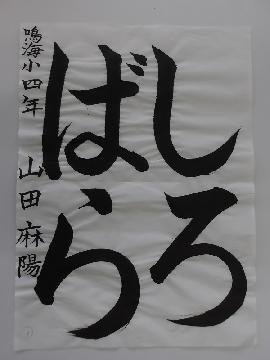 しろ
ばら
鳴海小四年 山田麻陽